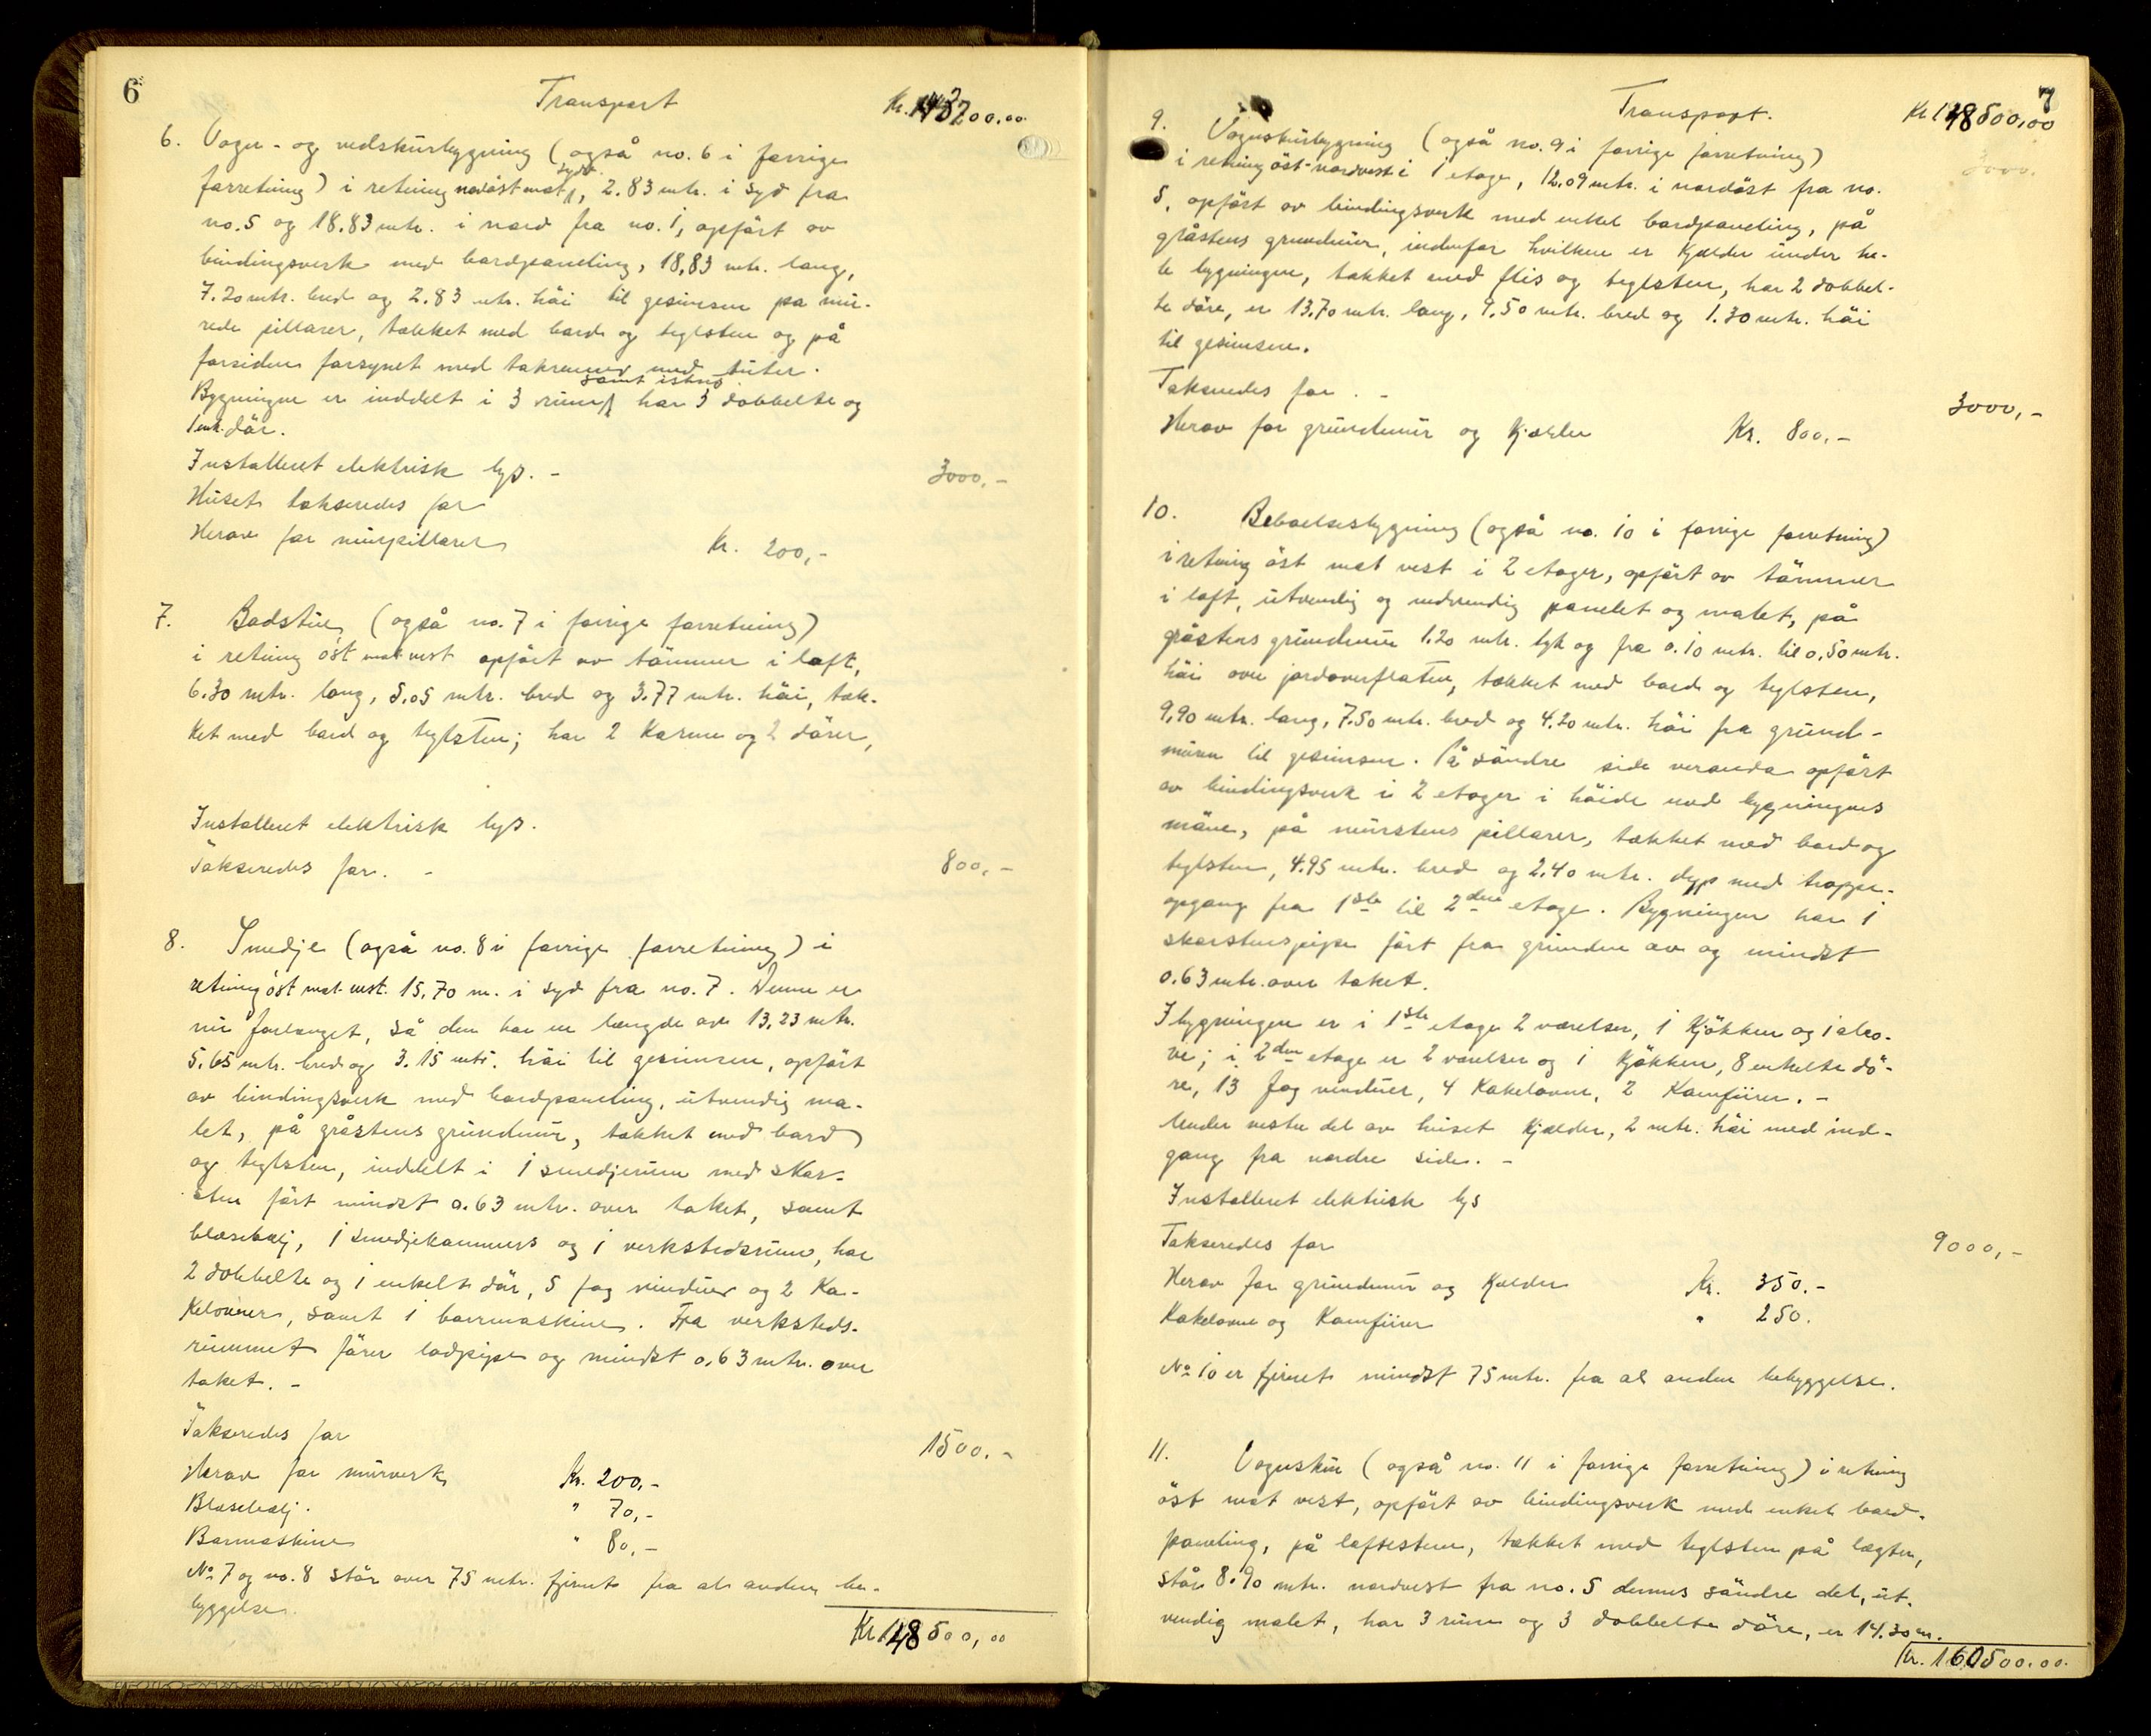 6
Transport
Kr. 143200.00
6. Vogn- og vedskurbygning (også no. 6 i forrige
forretning) i retning nordöst mot syd, 2.83 mtr. i syd fra
no. 5 og 18.83 mtr. i nord fra no. 1, opfört av
bindingsverk med bordpaneling, 18,83 mtr. lang,
7.20 mtr. bred og 2.83 mtr. höi til gesimsen på mu-
rede pillarer, tækket med bord og teglsten og på
forsiden forsynet med takrenner med tuter.
Bygningen er inddelt i 3 rum samt ishus har 3 dobbelte og
1 enk. dör.
Installert elektrisk lys. -
Huset takseredes for
3000,-
Herav for murpillarer
Kr. 200,-
7. Badstue (også no. 7 i forrige forretning)
i retning öst mot vest opfört av tömmer i laft,
6.30 mtr. lang, 5,05 mtr. bred og 3.77 mtr. höi, tæk-
ket med bord og teglsten; har 2 karme og 2 dörer,
Installert elektrisk lys.
Takseredes for. -
800,-
8. Smedje (også no. 8 i forrige forretning) i
retning öst mot vest. 15,70 m. i syd fra no. 7. Denne er
nu forlænget, så den har en længde av 13,23 mtr.
5,65 mtr. bred og 3.15 mtr. höi til gesimsen, opfört
av bindingsverk med bordpaneling, utvendig ma-
let, på gråstens grundmur, tækket med bord
og teglsten, inddelt i 1 smedjerum med skor-
sten fört mindst 0.63 mtr. over taket, samt
blæsebælj, 1 smedjekammers og 1 verkstedsrum, har
2 dobbelte og 1 enkelt dör, 5 fag vinduer og 2 ka-
kelovner, samt 1 bormaskine. Fra verksteds-
rummet förer lodpipe og mindst 0,63 mtr. over
taket. -
Takseredes for
1500.-
Herav for murverk
Kr. 200,-
Blæsebælj.
" 70,-
Bormaskine
" 80,-
No 7 og no. 8 står over 75 mtr. fjernt fra al anden be-
byggelse.
Kr 148500,00
7
Transport.
Kr 148500,00
3000.
9. Vognskurbygning (også no. 9 i forrige forretning)
i retning öst-nordvest i 1 etage, 12.09 mtr. i nordöst fra no.
5, opfört av bindingsverk med enkel bordpaneling, på
gråstens grundmur, indenfor hvilken er kjælder under he-
le bygningen, tækket med flis og teglsten, har 2 dobbel-
te döre, er 13.70 mtr. lang, 9,50 mtr. bred og 1.30 mtr. höi
til gesimsen.
Takseredes for . -
3000,-
Herav for grundmur og kjælder
Kr. 800.-
10. Beboelsesbygning (også no. 10 i forrige forretning)
i retning öst mot vest i 2 etager, opfört av tömmer
i laft, utvendig og indvendig panelet og malet, på
gråstens grundmur 1.20 mtr. tyk og fra 0.10 mtr. til 0,50 mtr.
höi over jordoverflaten, tækket med bord og teglsten,
9,90 mtr. lang, 7.50 mtr. bred og 4.20 mtr. höi fra grund-
muren til gesimsen. På söndre side veranda opfört
av bindingsverk i 2 etager i höide med bygningens
möne, på murstens pillarer, tækket med bord og
teglsten, 4.95 mtr. bred og 2.40 mtr. dyp med trappe-
opgang fra 1ste til 2den etage. Bygningen har 1
skorstenspipe fört fra grunden av og mindst
0.63 mtr. over taket.
I bygningen er i 1ste etage 2 værelser, 1 kjökken og 1 alko-
ve; i 2den etage er 2 værelser og 1 kjökken, 8 enkelte dö-
re, 13 fag vinduer, 4 kakelovne, 2 komfürer. -
Under vestre del av huset kjælder, 2 mtr. höi med ind-
gang fra nordre side. -
Installert elektrisk lys
Takseredes for
9000,-
Herav for grundmur og kjælder
Kr. 350.-
Kakelovne og Komfürer
" 250.
No 10 er fjernet mindst 75 mtr. fra al anden bebyggelse.
11. Vognskur (også no. 11 i forrige forretning) i retning
öst mot vest, opfört av bindingsverk med enkel bord-
paneling, på löftesten, tækket med teglsten på lægter,
står 8.90 mtr. nordvest fra no. 5 dennes söndre del, ut-
vendig malet, har 3 rum og 3 dobbelte döre, er 14.30 m.
Kr. 160500.00.